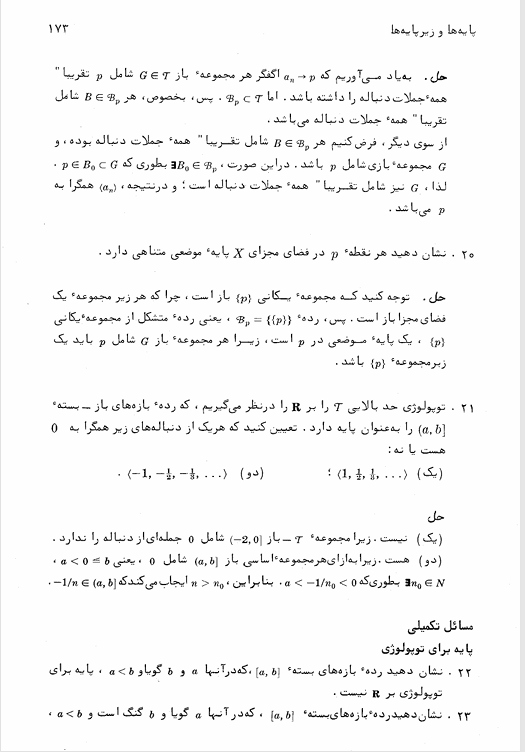 پایه‌ها و زیرپایه‌ها ۱۷۳
حل . به‌یاد می‌آوریم که aₙ → p اگفگر هر مجموعهٔ باز G ∈ 𝒯 شامل p تقریبا"
همهٔ جملات دنباله را داشته باشد . اما ℬₚ ⊂ 𝒯 . پس ، بخصوص ، هر B ∈ ℬₚ شامل
تقریبا" همهٔ جملات دنباله می‌باشد .
از سوی دیگر ، فرض کنیم هر B ∈ ℬₚ شامل تقریبا" همهٔ جملات دنباله بوده ، و
G مجموعهٔ بازی شامل p باشد . در این صورت ، ∃B₀ ∈ ℬₚ بطوری که p ∈ B₀ ⊂ G .
لذا ، G نیز شامل تقریبا" همهٔ جملات دنباله است ؛ و درنتیجه ، ⟨aₙ⟩ همگرا به
p می‌باشد .
۲۰ . نشان دهید هر نقطهٔ p در فضای مجزای X پایهٔ موضعی متناهی دارد .
حل . توجه کنید که مجموعهٔ یکانی {p} باز است ، چرا که هر زیر مجموعهٔ یک
فضای مجزا باز است . پس ، ردهٔ ℬₚ = {{p}} ، یعنی ردهٔ متشکل از مجموعهٔ یکانی
{p} ، یک پایهٔ موضعی در p است ، زیرا هر مجموعهٔ باز G شامل p باید یک
زیرمجموعهٔ {p} باشد .
۲۱ . توپولوژی حد بالایی 𝒯 را بر R را درنظر می‌گیریم ، که ردهٔ بازه‌های باز ــ بستهٔ
(a, b] را به‌عنوان پایه دارد . تعیین کنید که هریک از دنباله‌های زیر همگرا به 0
هست یا نه :
(یک) ⟨1, ½, ⅓, ...⟩ ؛ (دو) ⟨−1, −½, −⅓, ...⟩ .
حل
(یک) نیست . زیرا مجموعهٔ 𝒯 ــ باز (−2, 0] شامل 0 جمله‌ای از دنباله را ندارد .
(دو) هست . زیرا به‌ازای هر مجموعهٔ اساسی باز (a, b] شامل 0 ، یعنی a < 0 ≤ b ،
∃n₀ ∈ N بطوری که a < −1/n₀ < 0 . بنابراین ، n > n₀ ایجاب می‌کند که −1/n ∈ (a, b] .
مسائل تکمیلی
پایه برای توپولوژی
۲۲ . نشان دهید ردهٔ بازه‌های بستهٔ [a, b] ، که در آنها a و b گویا و a < b ، پایه برای
توپولوژی بر R نیست .
۲۳ . نشان دهید ردهٔ بازه‌های بستهٔ [a, b] ، که در آنها a گویا و b گنگ است و a < b ،